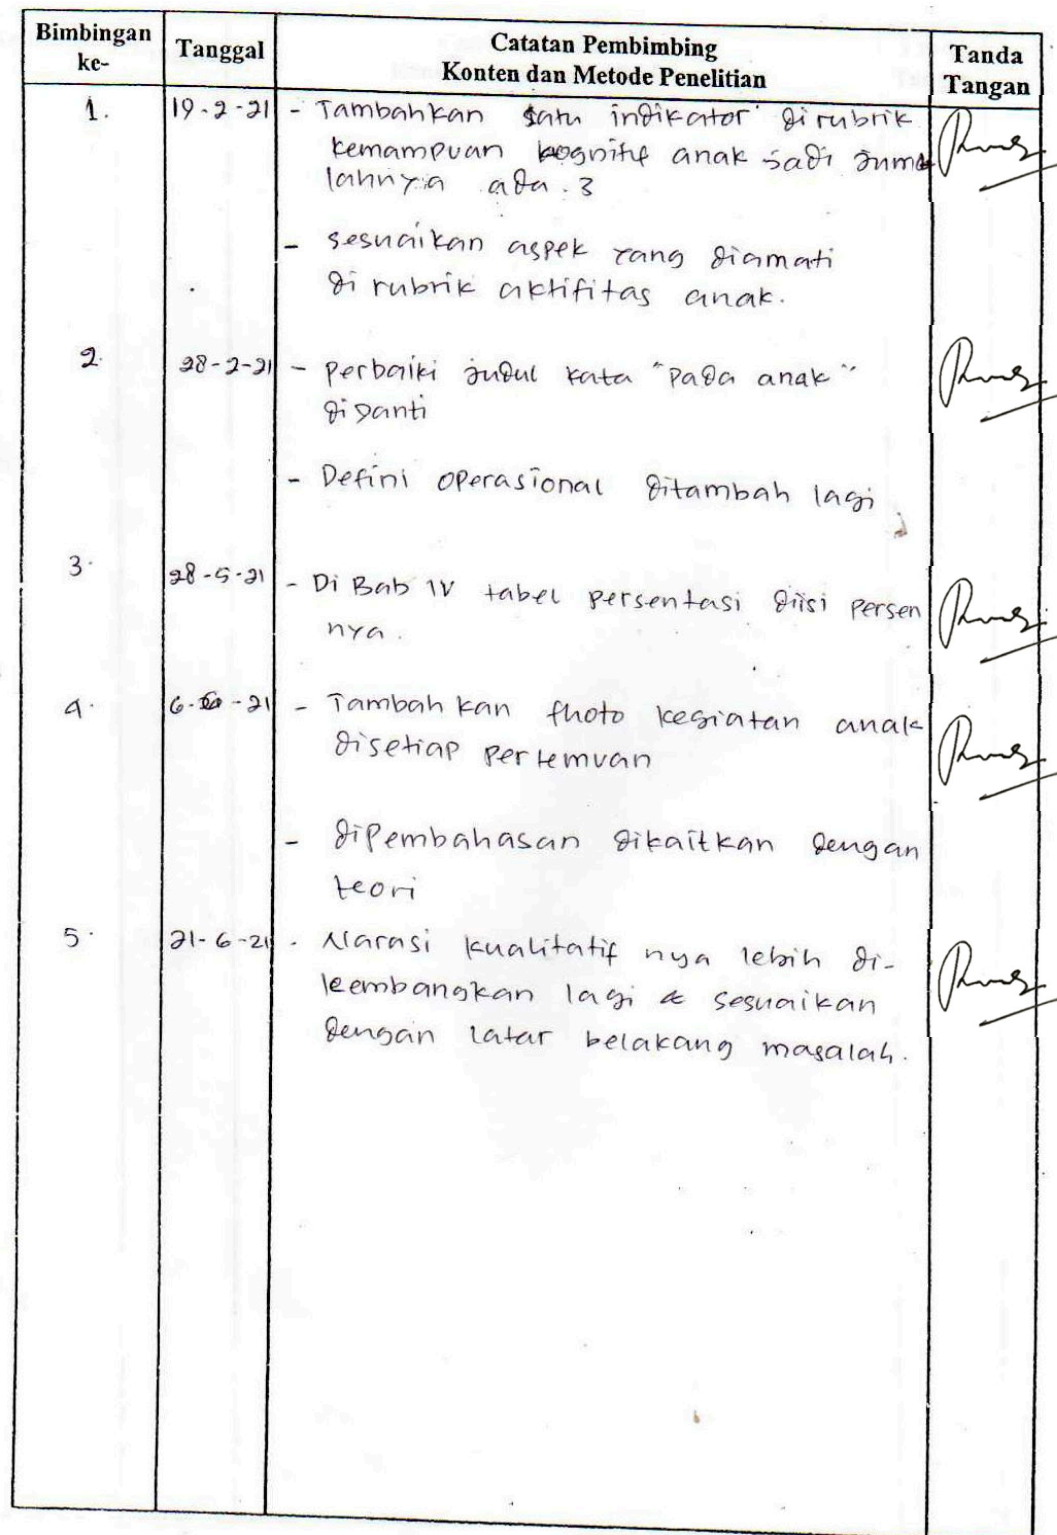 Bimbingan ke-
Tanggal
Catatan Pembimbing
Konten dan Metode Penelitian
Tanda Tangan
1. 19-2-21 - Tambahkan satu indikator di rubrik
kemampuan kognitif anak jadi jum
lahnya ada 3
- sesuaikan aspek yang diamati
di rubrik aktifitas anak.
2. 28-2-21 - perbaiki judul kata "pada anak"
diganti
- Defini operasional ditambah lagi
3. 28-5-21 - Di Bab IV tabel persentasi diisi persen
nya.
4. 6- -21 - Tambah kan fhoto kegiatan anak
disetiap pertemuan
- dipembahasan dikaitkan dengan
teori
5. 21-6-21 - Narasi kualitatif nya lebih di-
kembangkan lagi & sesuaikan
dengan latar belakang masalah.